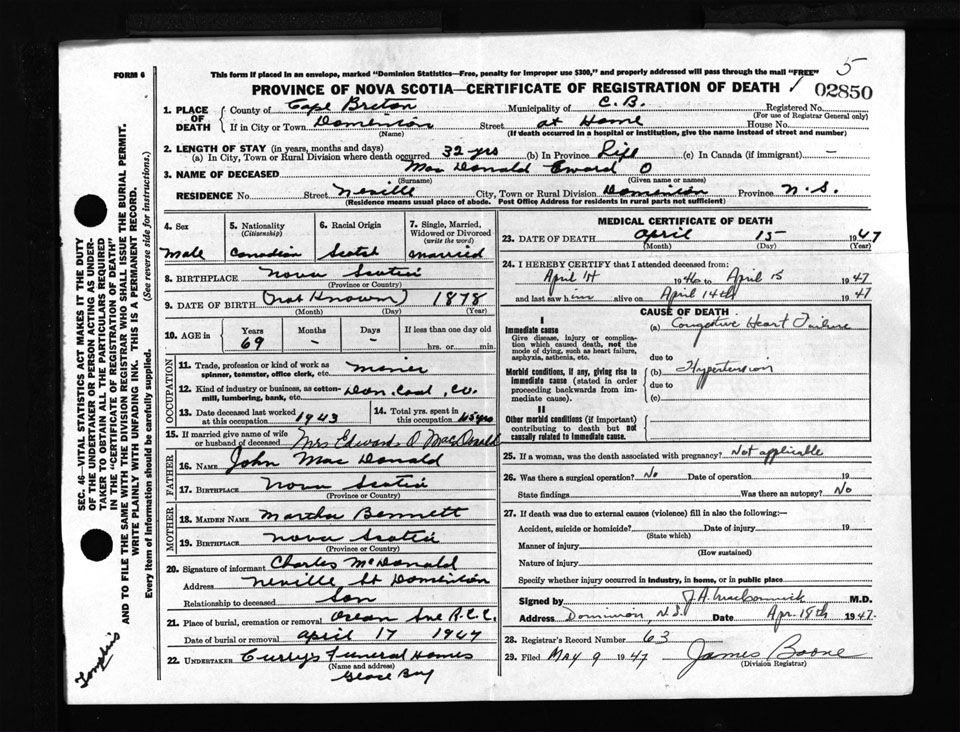 FORM 6
This form if placed in an envelope, marked "Dominion Statistics—Free, penalty for improper use $300," and properly addressed will pass through the mail "FREE"
5
PROVINCE OF NOVA SCOTIA—CERTIFICATE OF REGISTRATION OF DEATH
02850
1. PLACE OF DEATH
County of Cape Breton Municipality of C.B. Registered No.
(For use of Registrar General only)
If in City or Town Dominion Street at Home House No.
(Name) (If death occurred in a hospital or institution, give the name instead of street and number)
2. LENGTH OF STAY (in years, months and days)
(a) In City, Town or Rural Division where death occurred 32 yrs (b) In Province Life (c) In Canada (if immigrant) —
3. NAME OF DECEASED Mac Donald Eward O
(Surname) (Given name or names)
RESIDENCE No. Street Neville City, Town or Rural Division Dominion Province N.S.
(Residence means usual place of abode. Post Office Address for residents in rural parts not sufficient)
4. Sex
Male
5. Nationality
(Citizenship)
Canadian
6. Racial Origin
Scotch
7. Single, Married, Widowed or Divorced
(write the word)
married
8. BIRTHPLACE Nova Scotia
(Province or Country)
9. DATE OF BIRTH (not Known) 1878
(Month) (Day) (Year)
10. AGE in
Years Months Days If less than one day old
69 - - hrs. or min.
OCCUPATION
11. Trade, profession or kind of work as
spinner, teamster, office clerk, etc. miner
12. Kind of industry or business, as cotton-
mill, lumbering, bank, etc. Dom. Coal, Co.
13. Date deceased last worked
at this occupation 1943
14. Total yrs. spent in
this occupation yrs
15. If married give name of wife
or husband of deceased Mrs Edward O MacDonald
FATHER
16. NAME John Mac Donald
17. BIRTHPLACE Nova Scotia
(Province or Country)
MOTHER
18. MAIDEN NAME Martha Bennett
19. BIRTHPLACE Nova Scotia
(Province or Country)
20. Signature of informant Charles McDonald
Address Neville St Dominion
Relationship to deceased Son
21. Place of burial, cremation or removal Ocean Ave R.C.C.
Date of burial or removal April 17 1947
22. UNDERTAKER Curry's Funeral Homes
(Name and address)
Glace Bay
MEDICAL CERTIFICATE OF DEATH
23. DATE OF DEATH April 15 1947
(Month) (Day) (Year)
24. I HEREBY CERTIFY that I attended deceased from:
April 1st 1946 to April 15 1947
and last saw him alive on April 14th 1947
CAUSE OF DEATH
I
Immediate cause
Give disease, injury or complica-
tion which caused death, not the
mode of dying, such as heart failure,
asphyxia, asthenia, etc.
(a) Congestive Heart Failure
due to
Morbid conditions, if any, giving rise to
immediate cause (stated in order
proceeding backwards from im-
mediate cause).
(b) Hypertension
due to
(c)
II
Other morbid conditions (if important)
contributing to death but not
causally related to immediate cause.
25. If a woman, was the death associated with pregnancy? Not applicable
26. Was there a surgical operation? No Date of operation 19
State findings Was there an autopsy? No
27. If death was due to external causes (violence) fill in also the following:—
Accident, suicide or homicide? Date of injury 19
(State which)
Manner of injury
(How sustained)
Nature of injury
Specify whether injury occurred in industry, in home, or in public place
Signed by M.D.
Address Dominion, N.S. Date Apr. 18th 1947.
28. Registrar's Record Number 63
29. Filed May 9 1947 James Boone
(Division Registrar)
SEC. 46—VITAL STATISTICS ACT MAKES IT THE DUTY
OF THE UNDERTAKER OR PERSON ACTING AS UNDER-
TAKER TO OBTAIN ALL THE PARTICULARS REQUIRED
IN THE "CERTIFICATE OF REGISTRATION OF DEATH"
AND TO FILE THE SAME WITH THE DIVISION REGISTRAR WHO SHALL ISSUE THE BURIAL PERMIT.
WRITE PLAINLY WITH UNFADING INK. THIS IS A PERMANENT RECORD.
Every item of information should be carefully supplied. (See reverse side for instructions.)